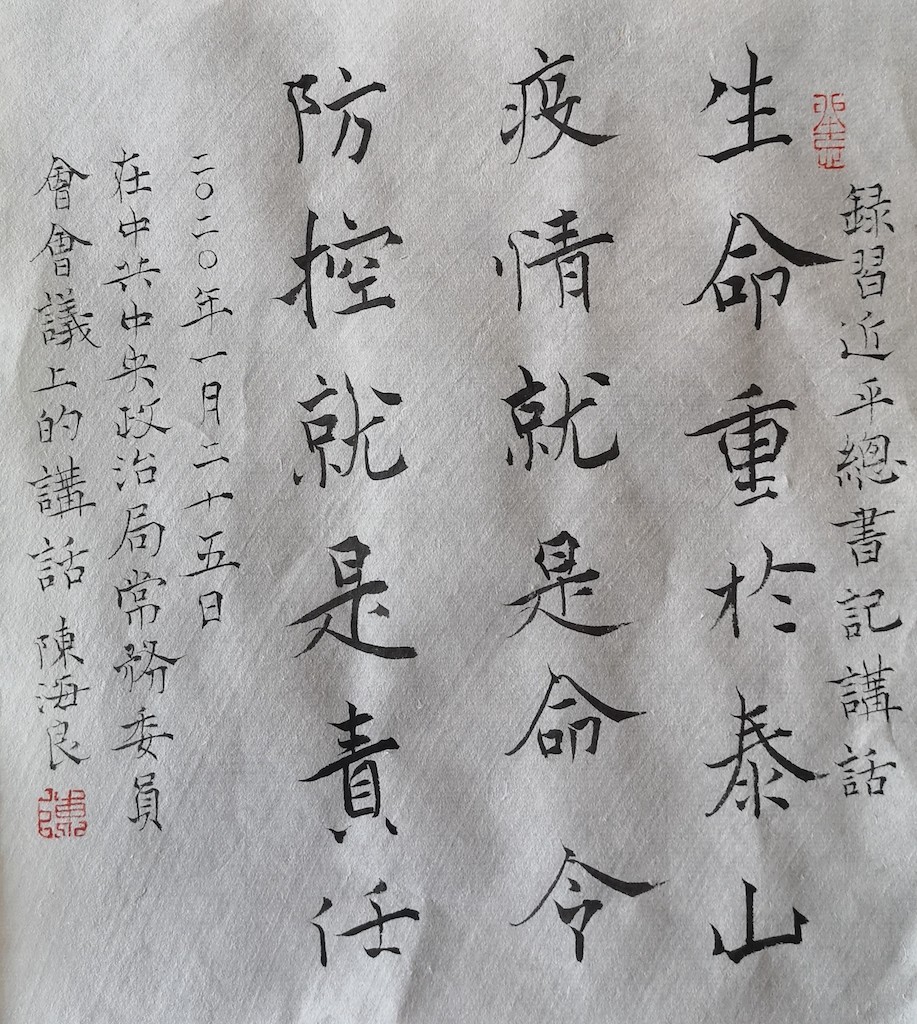 録習近平總書記講話
生命重於泰山
疫情就是命令
防控就是責任
二〇二〇年一月二十五日
在中共中央政治局常務委員
會會議上的講話 陳海良
陳